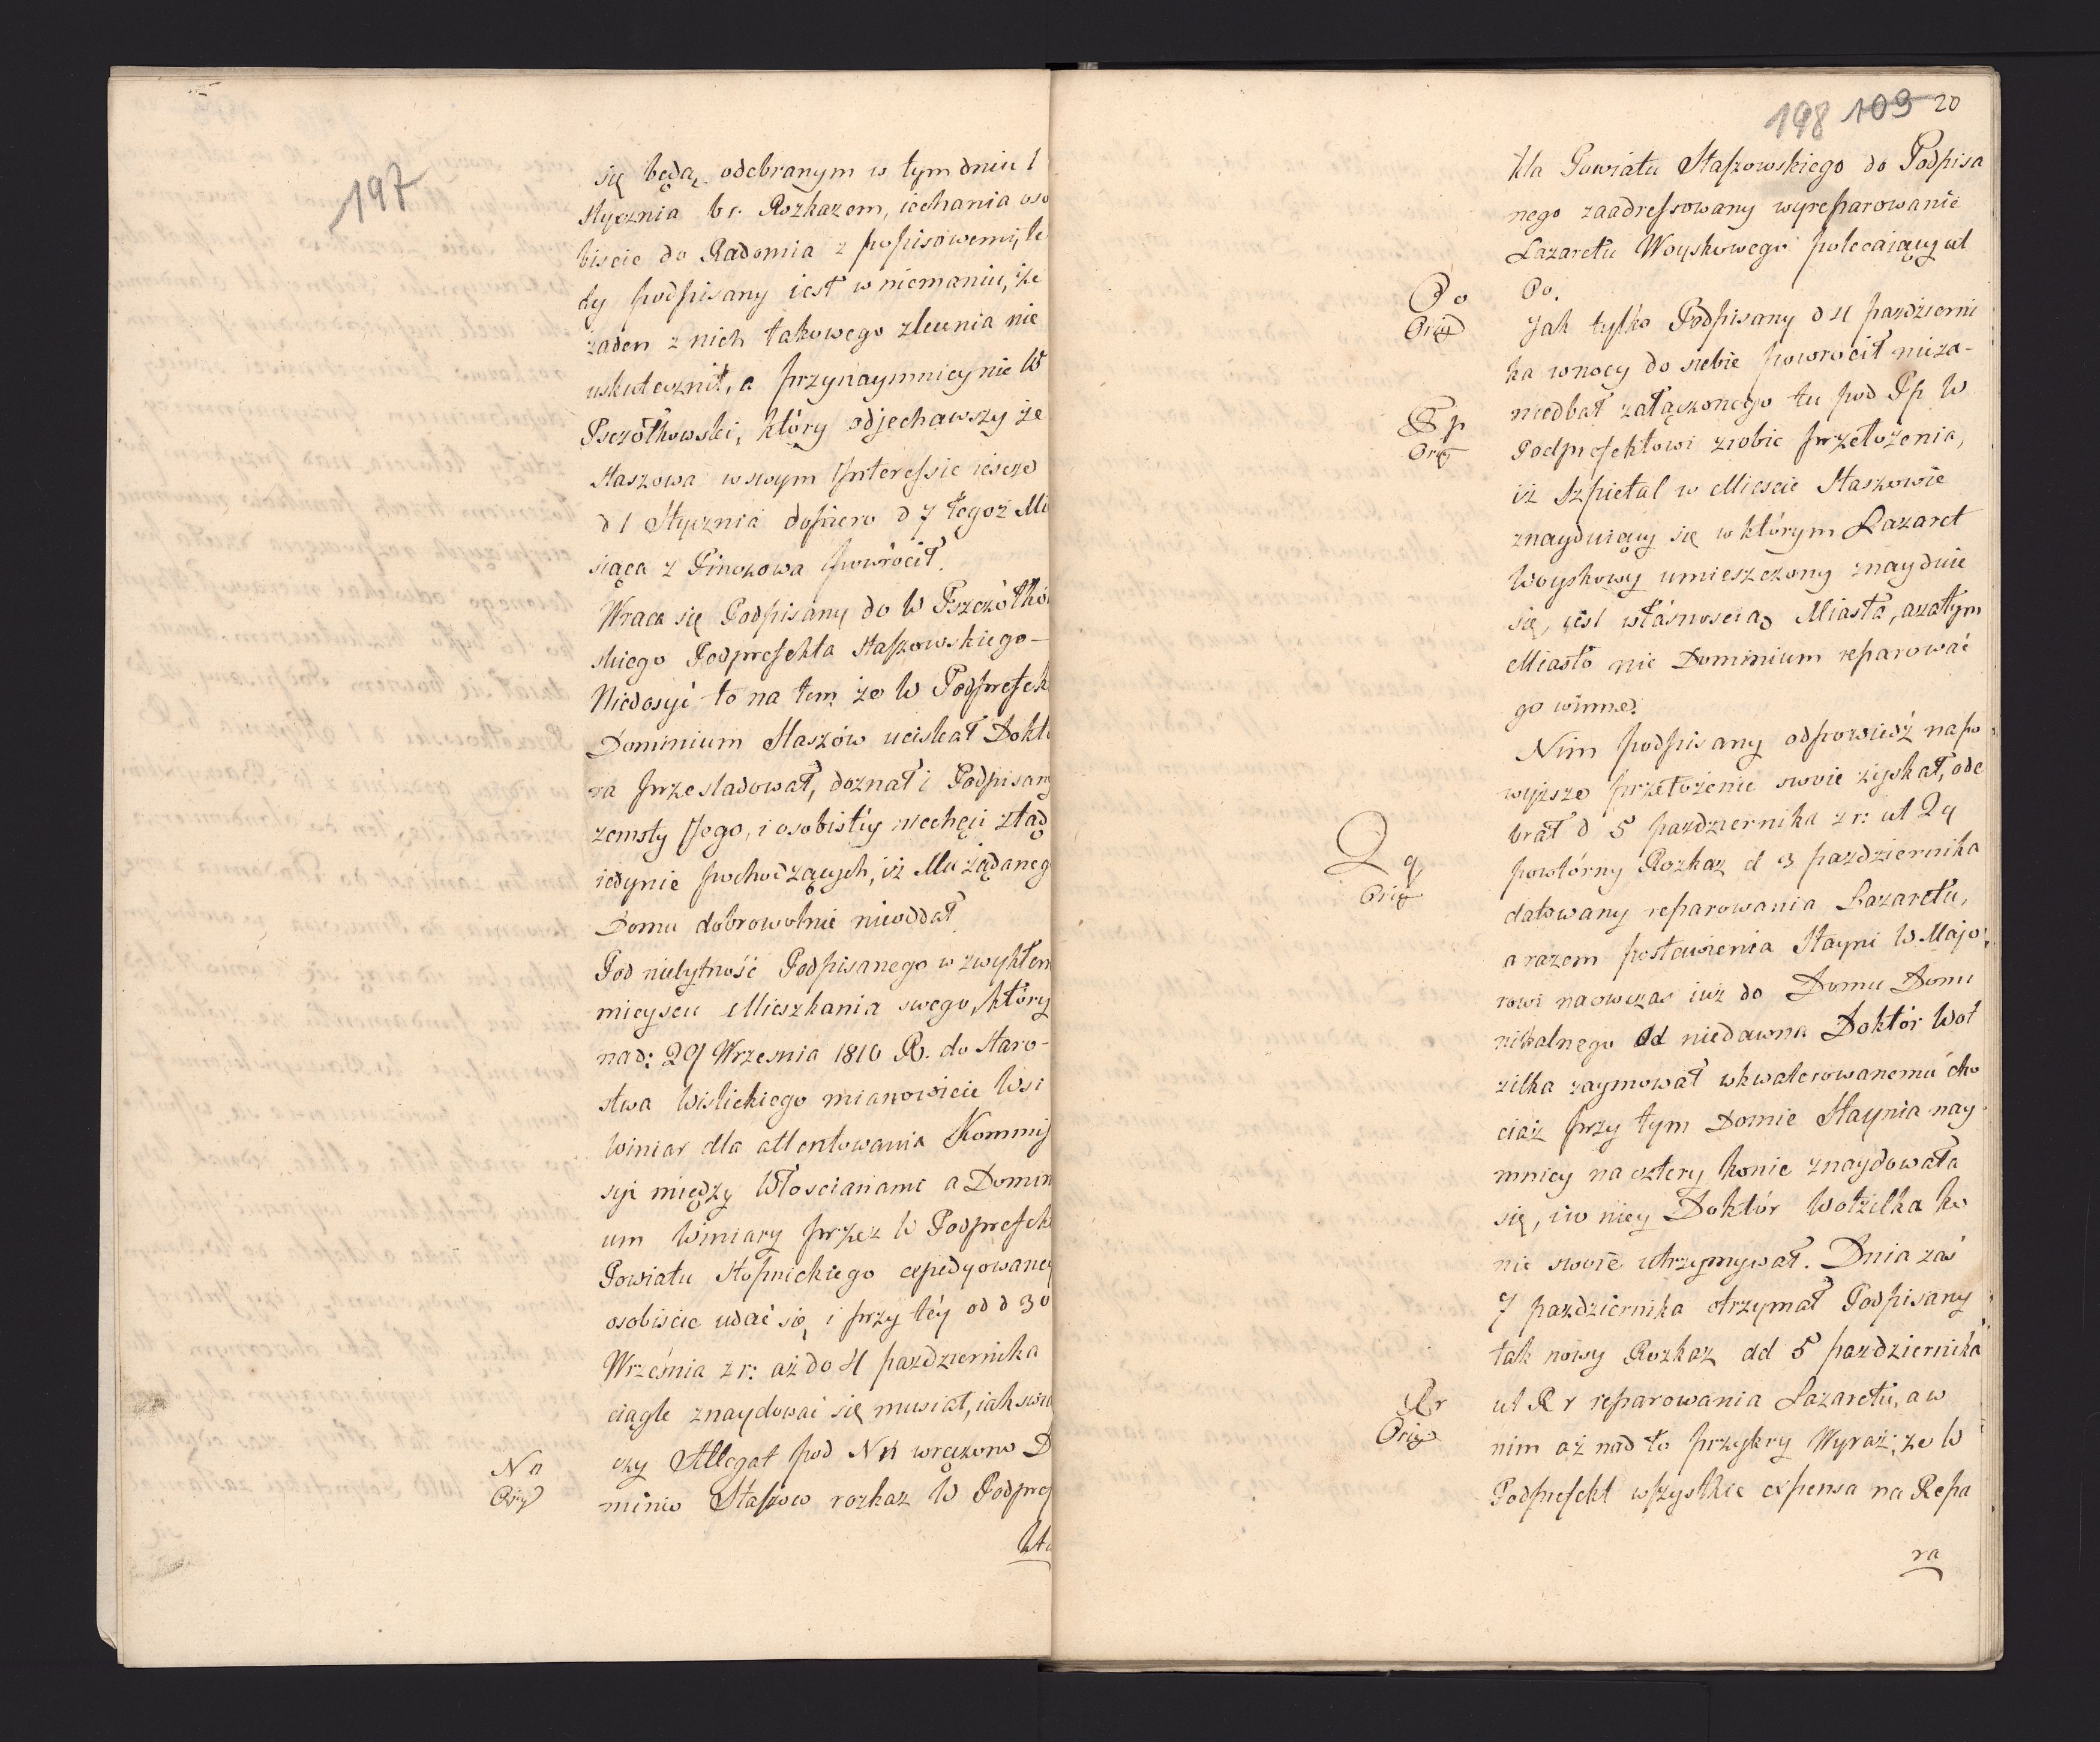 197
się będą odebranym w tym dniu 1
Stycznia b r. Rozkazem, iechania oso
biscie do Radomia z popisowemi, te
dy podpisany iest w niemaniu, że
żaden z nich takowego zlecenia nie
uskutecznił, a przynaymniey nie W
Psczółkowski, który odjechawszy ze
Staszowa w swym Interessie ieszcze
d 1 Stycznia dopiero d 7 tegoż Mi
siąca z Pinczowa powrócił.
Wraca się Podpisany do W Pszczółkó
skiego Podprefekta Staszowskiego—
Niedosyć to na tem że W Podprefek
Dominium Staszów uciskał Dokto
ra prześladował, doznał i Podpisany
zemsty Jego, i osobistey niechęci ztąd
iedynie pochodzących, iż Mu żądaneg
Domu dobrowolnie nieoddał.
Pod niebytność Podpisanego w zwykłem
mieyscu Mieszkania swego, który
na d: 29 Wrzesnia 1810 R. do Staro-
stwa Wislickiego mianowicie Wsi
Winiar dla attentowania Kommis
syi między Włoscianami a Domini
um Winiary przez W Podprefekt
Powiatu Stopnickiego expedyowaney
osobiscie udać się, i przy téy od d 30
Września z r: aż do 4 pazdziernika
ciągle znaydować się musiał, iak swia
N n
Orig
czy Allegat pod N n wręczono D
minio Staszow rozkaz W Podpref
kta
198 109 20
kta Powiatu Staszowskiego do Podpisa
nego zaadressowany wyreparowanie
Lazaretu Woyskowego polecaiący ut
O o
Orig
Oo.
Jak tylko Podpisany d 4 pazdzierni
ka w nocy do siebie powrócił nieza-
P p
Orig
niedbał załączonego tu pod Pp W
Podprefektowi zrobic przełożenia,
iż Szpietal w Miescie Staszowie
znayduiący się w którym Lazaret
Woyskowy umieszczony znayduie
się, iest własnoscią Miasta, a zatym
Miasto nie Dominium reparować
go winne.
Nim podpisany odpowiedź na po
wyższe przełożenie swoie zyskał, ode
brał d 5 pazdziernika z r: ut Qq
Q q
Orig
powtórny Rozkaz d 3 pazdziernika
datowany reparowania Lazaretu,
a razem postawienia Stayni W Majo
rowi naowczas iuż do Domu Domi
nikalnego od niedawna Doktór Wot
zilka zaymował wkwaterowanemu cho
ciaż przy tym Domie Staynia nay
mniey na cztery konie znaydowała
się, i w niey Doktór Wotzilka ko
nie swoie utrzymywał. Dnia zaś
7 pazdziernika otrzymał Podpisany
tak nowy Rozkaz dd 5 pazdziernika
R r
Orig
ut R r reparowania Lazaretu, a w
nim aż nad to przykry Wyraz, że W
Podprefekt wszystkie expensa na Repa
ra